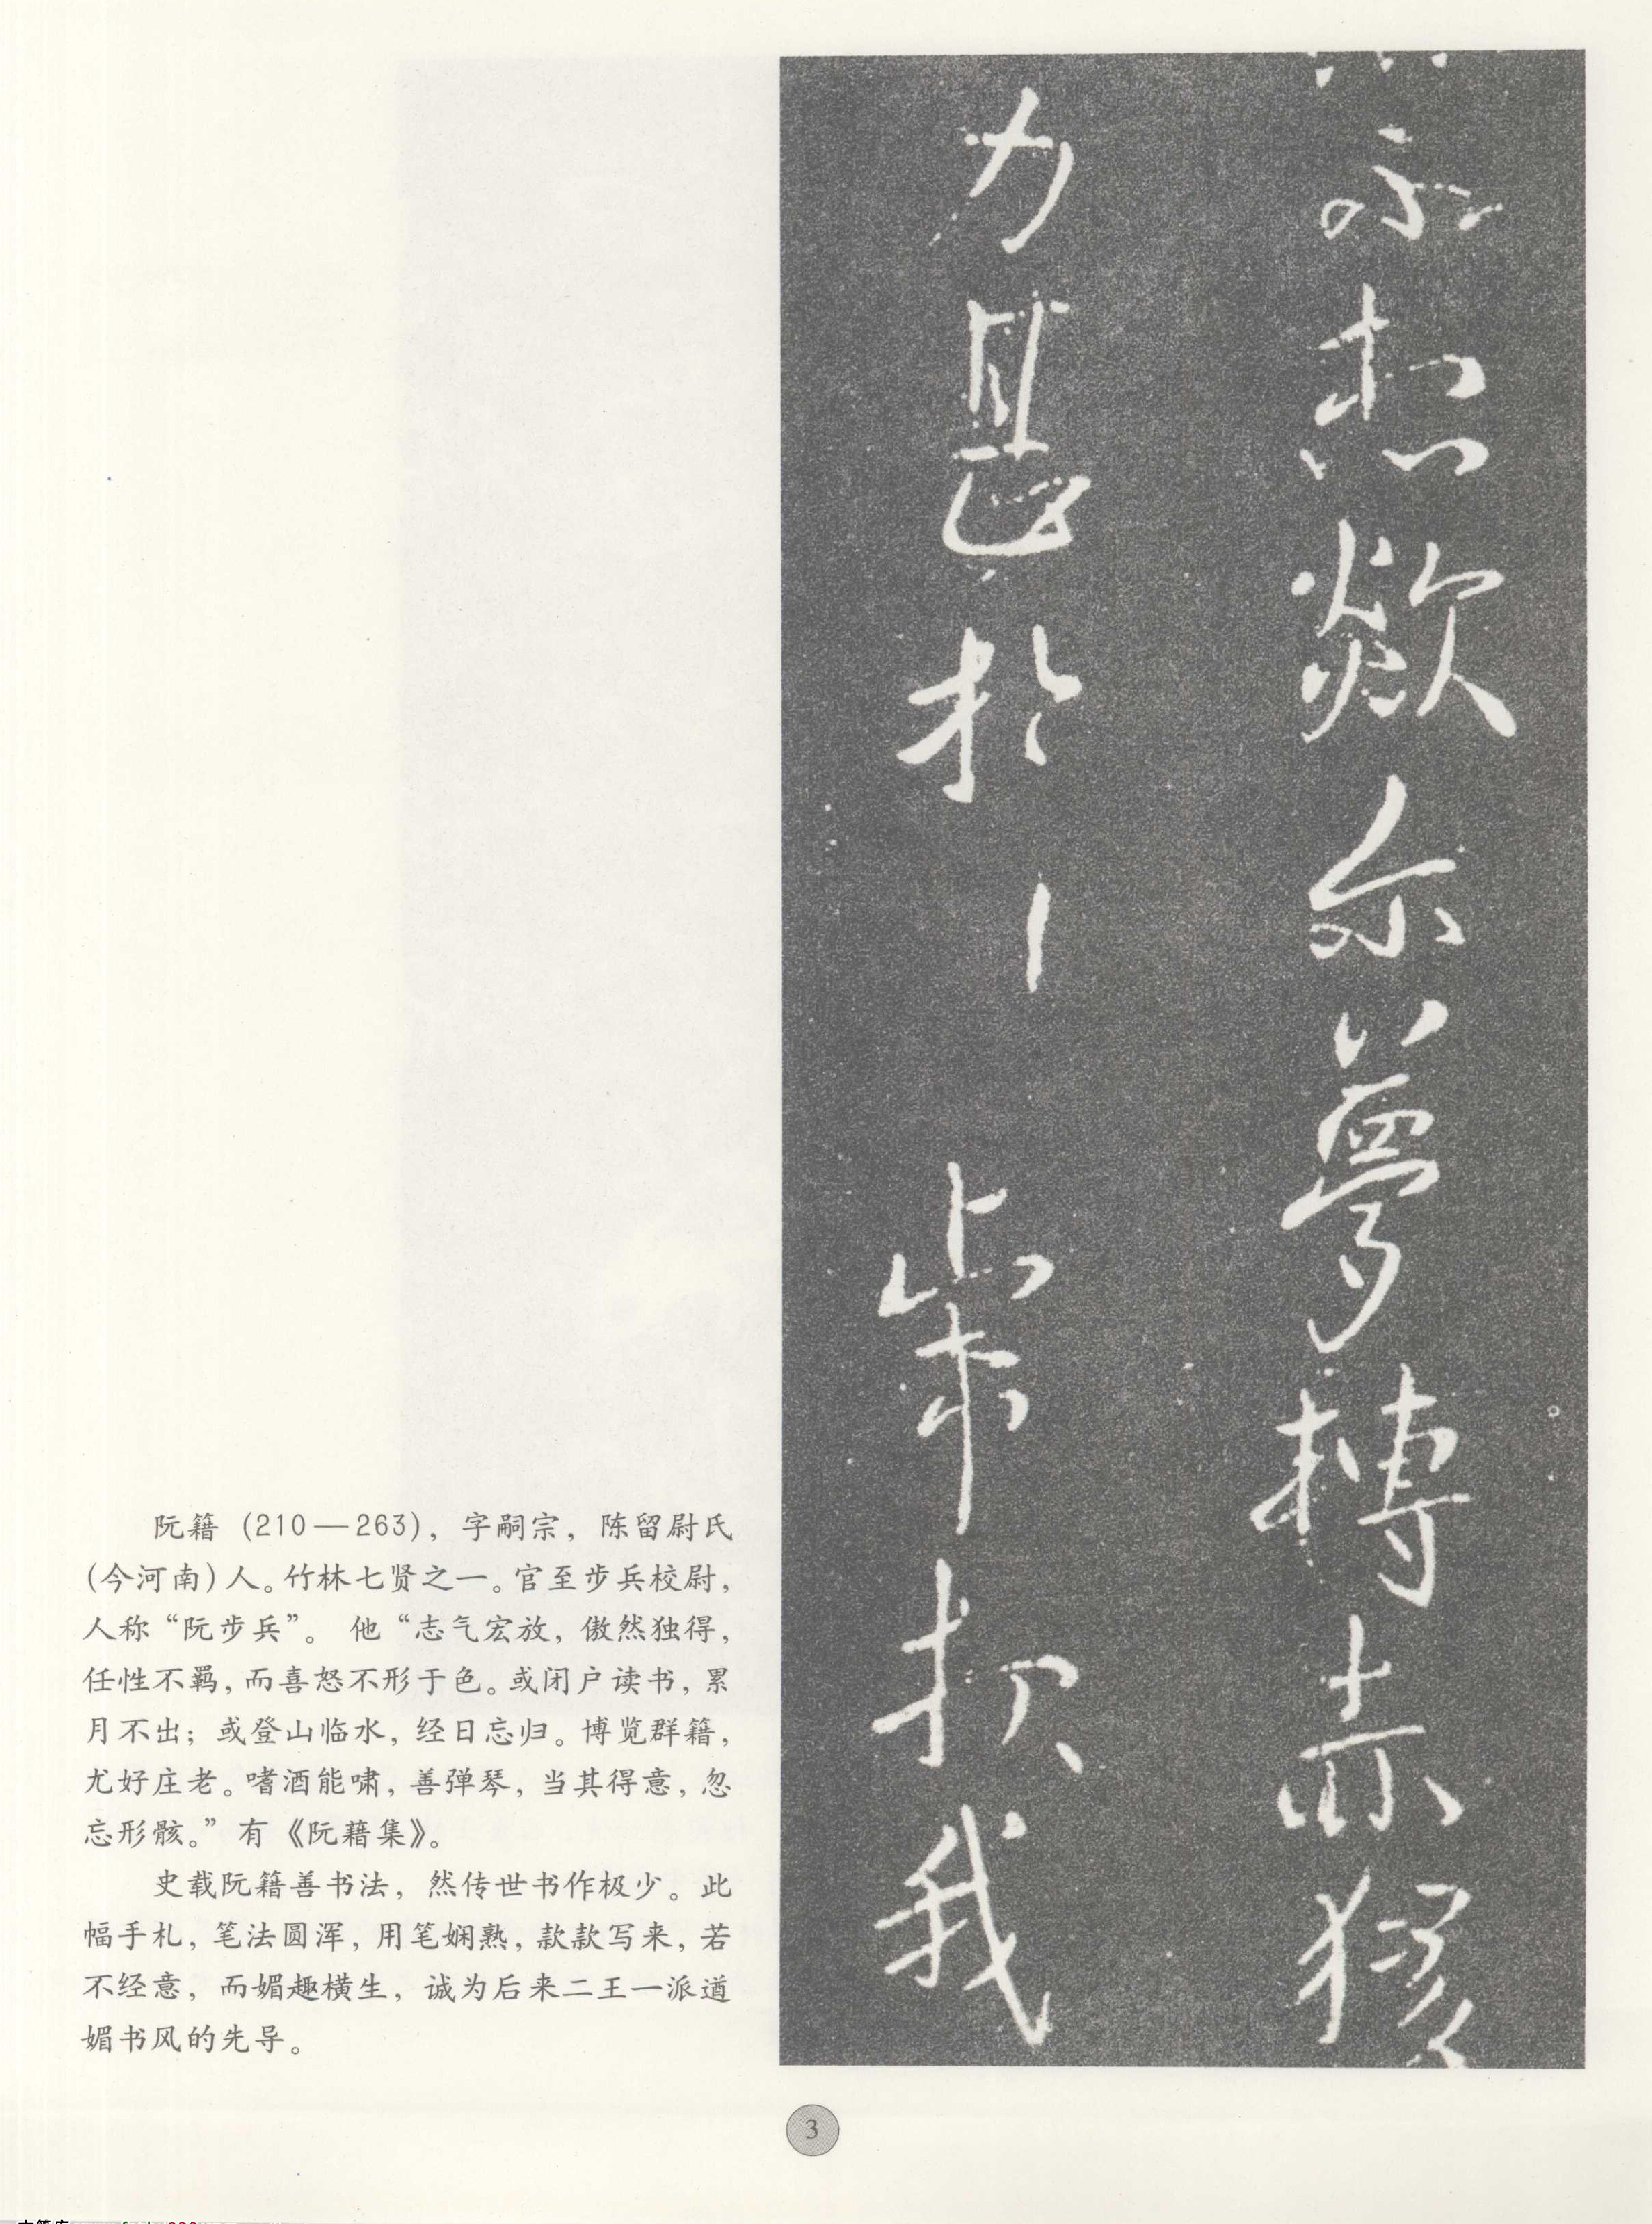 尔梦搏赤猿
力甚於
柴扶我
阮籍 (210—263), 字嗣宗, 陈留尉氏
(今河南)人。竹林七贤之一。官至步兵校尉,
人称“阮步兵”。 他“志气宏放, 傲然独得,
任性不羁, 而喜怒不形于色。或闭户读书, 累
月不出; 或登山临水, 经日忘归。博览群籍,
尤好庄老。嗜酒能啸, 善弹琴, 当其得意, 忽
忘形骸。” 有《阮藉集》。
史载阮籍善书法, 然传世书作极少。此
幅手札, 笔法圆浑, 用笔娴熟, 款款写来, 若
不经意, 而媚趣横生, 诚为后来二王一派遒
媚书风的先导。
3